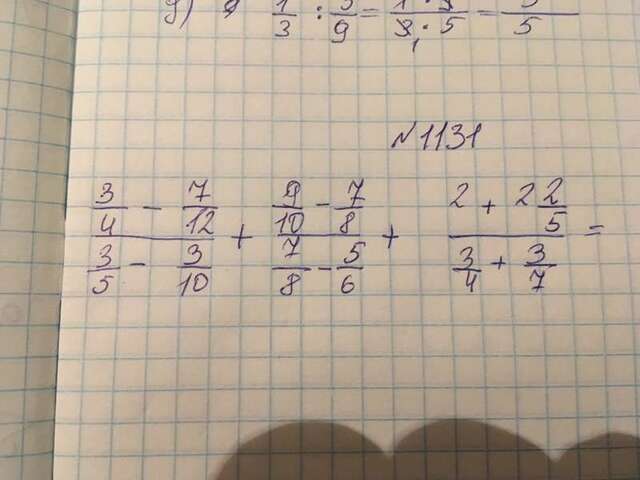 g) 1/3 : 5/9 = =
№1131
(3/4 - 7/12)/(3/5 - 3/10) + (9/10 - 7/8)/(7/8 - 5/6) + (2 + 2 2/5)/(3/4 + 3/7) =